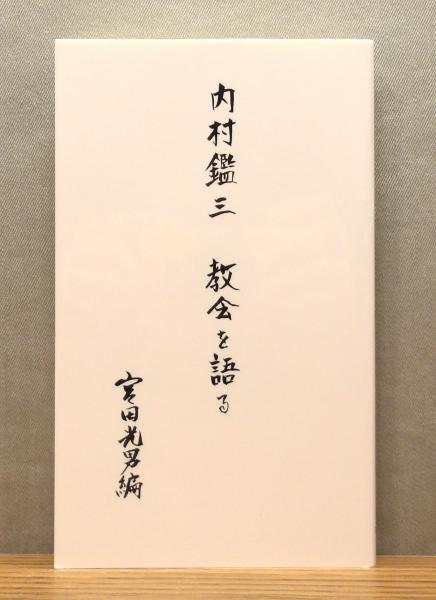 内村鑑三 教会を語る
宮田光男編